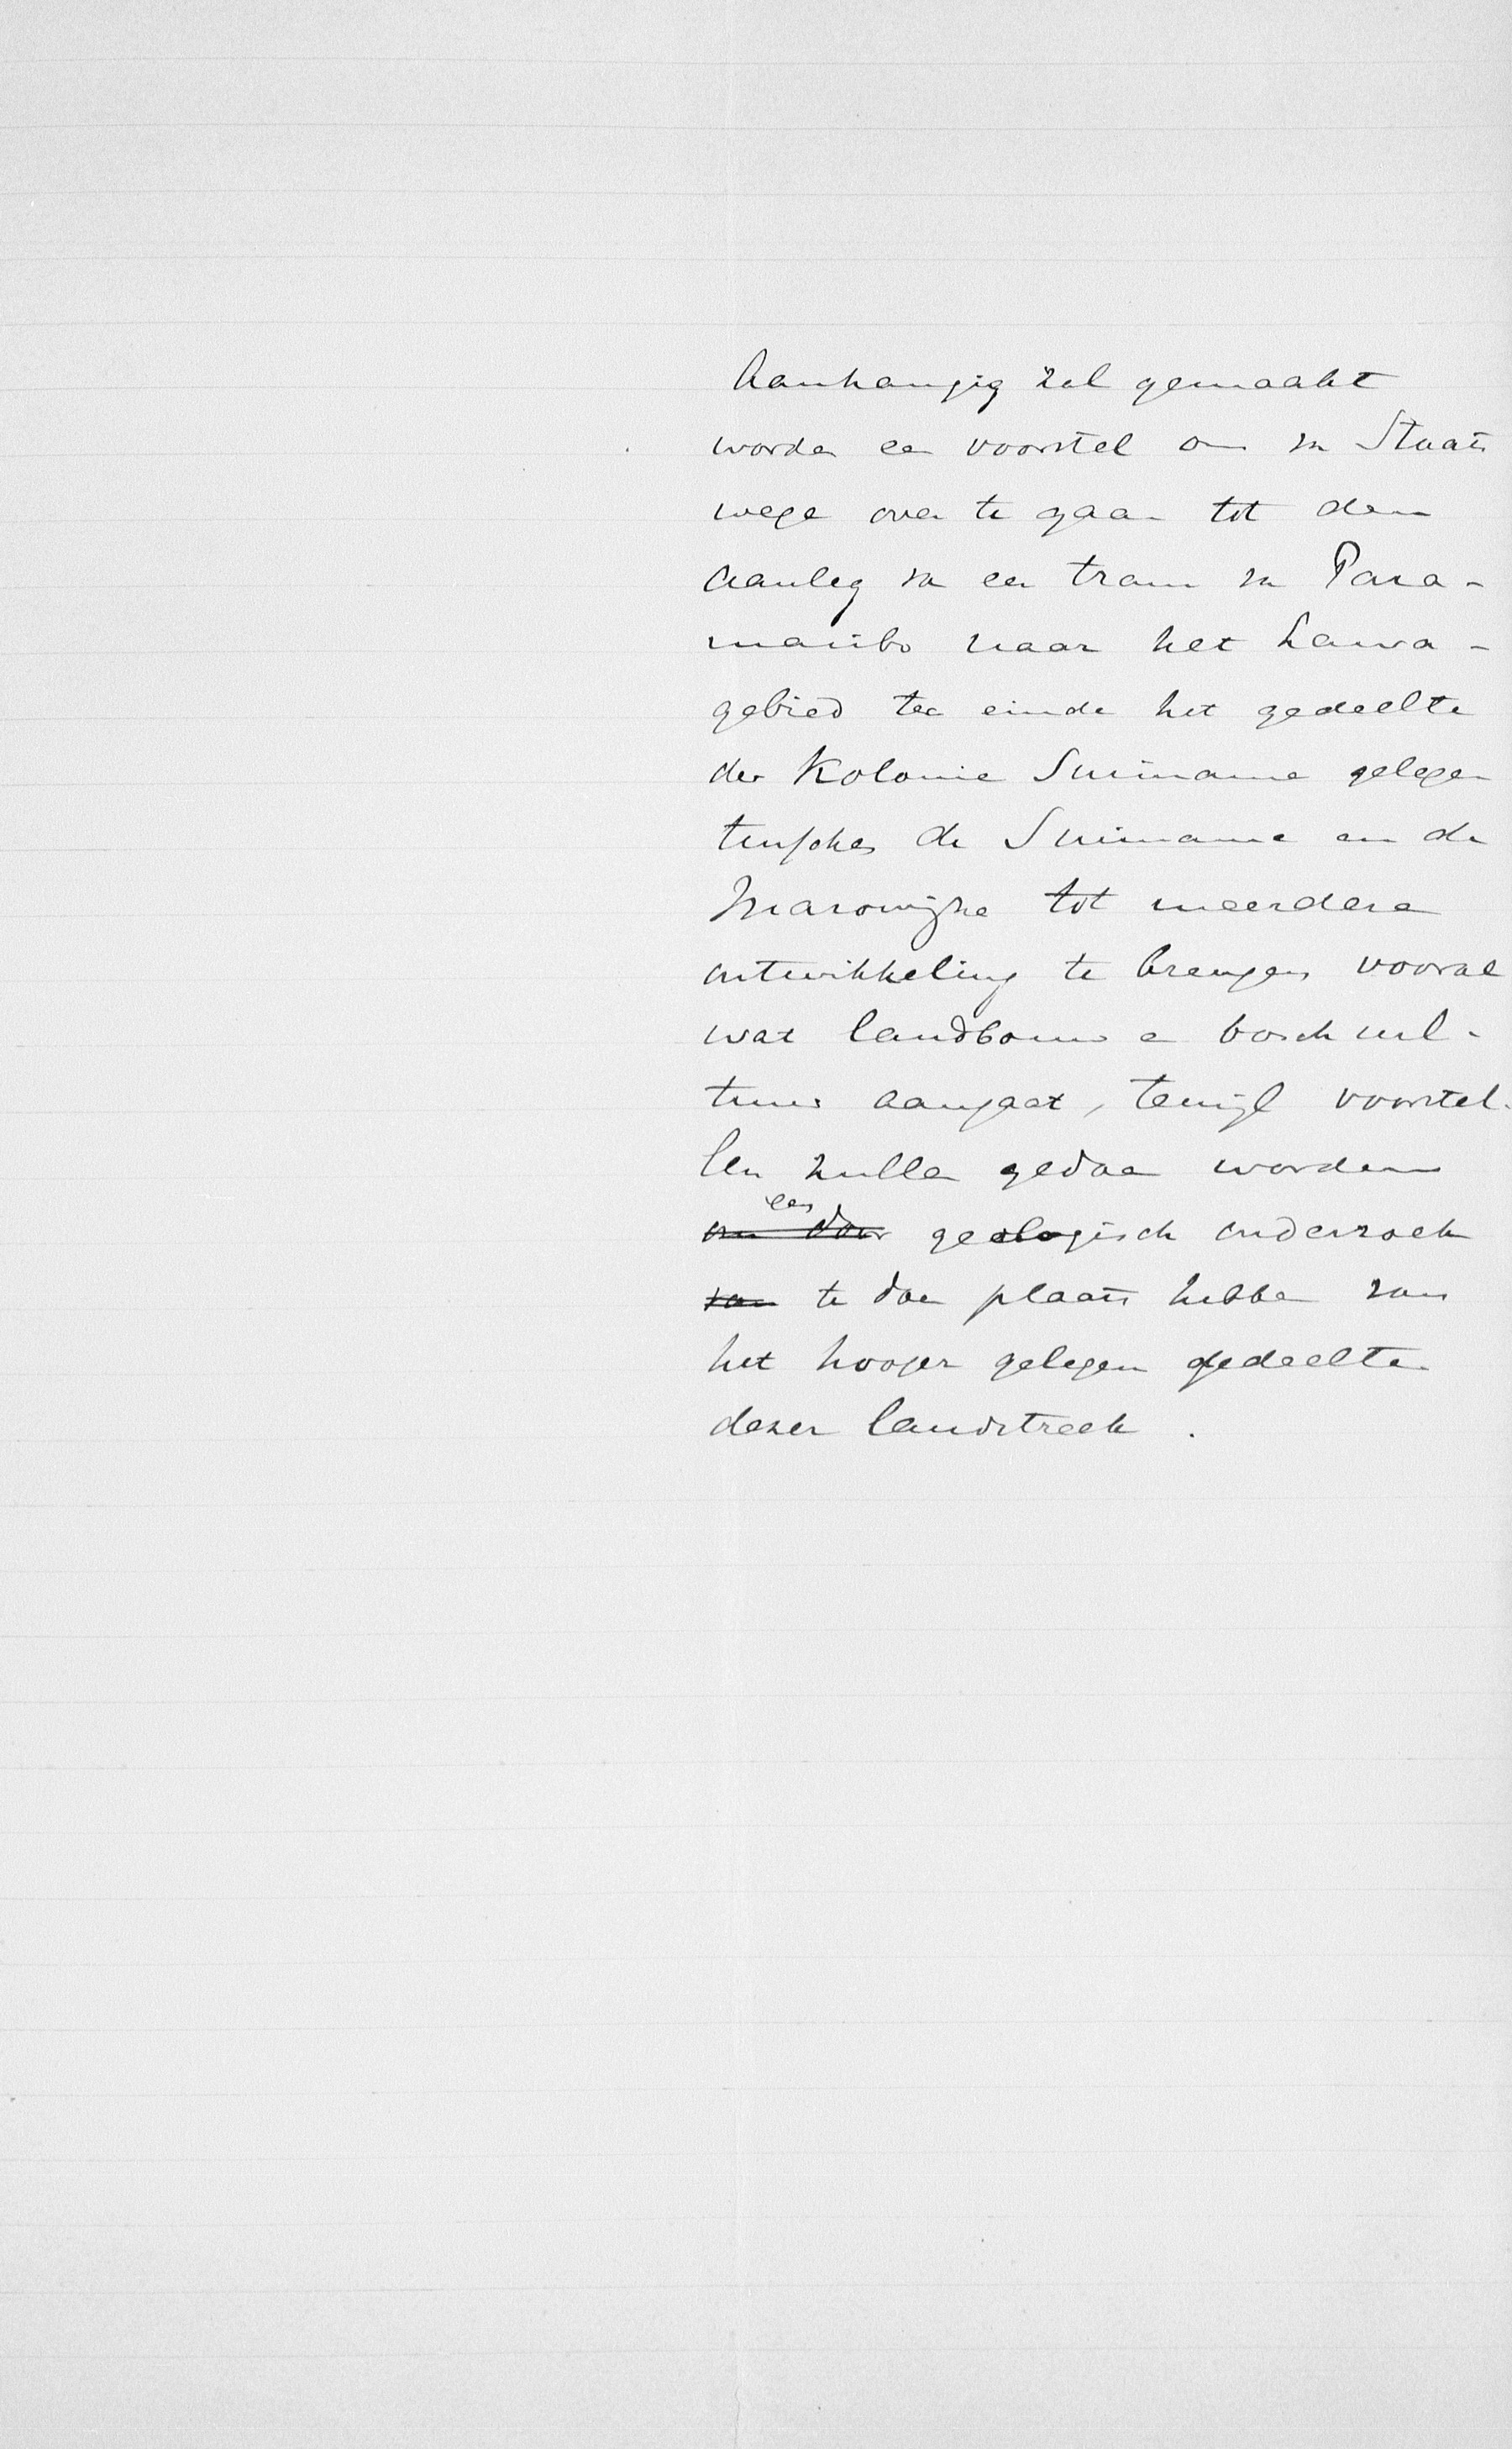 Aanhangig zal gemaakt
worden een voorstel om van Staats
wege over te gaan tot den
aanleg van een tram van Para-
maribo naar het Lawa-
gebied ten einde het gedeelte
der Kolonie Suriname gelegen
tusschen de Suriname en de
Marowijne tot meerdere
ontwikkeling te brengen vooral
wat landbouw en boschcul-
tuur aangaat, terwijl voorstel-
len zullen gedaan worden
een
om door geologisch onderzoek
van te doen plaats hebben van
het hooger gelegen gedeelte
dezer landstreek.